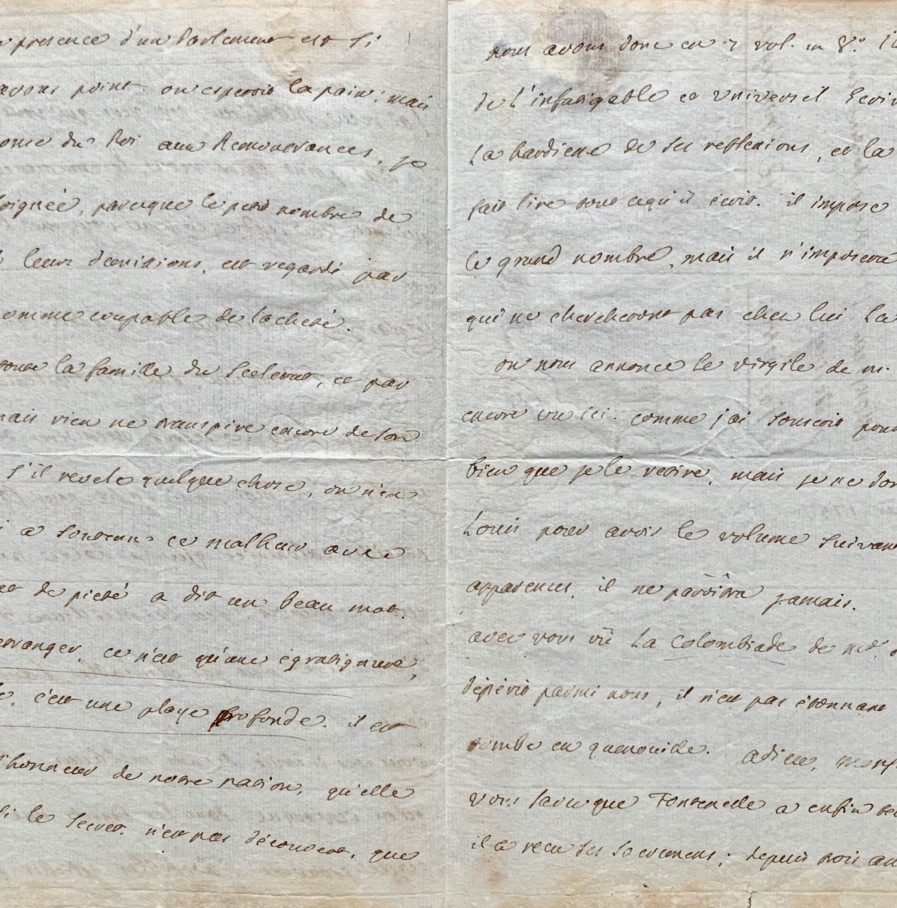 presence d'un Parlement est si
avons point. on esperoit la paix; mais
du Roi aux Remontrances, je
soignée, parceque le petit nombre de
leur demissions, est regardé par
comme coupable de lacheté.
toute la famille du Scelerat, et par
mais rien ne transpire encore de son
s'il revele quelque chose, on n'en
a soutenu ce malheur avec
et de pieté a dit un beau mot.
etranger, ce n'est qu'une egratignure,
c'est une playe profonde. il est
l'honneur de notre nation, qu'elle
si le secret n'est pas découvert, que
nous avons donc en 7 vol. in 8.° l'
de l'infatigable et universel Ecriv
La hardiesse de ses reflexions, et la
fait lire tout cequ'il écrit. il impose
le grand nombre, mais il n'imposera
qui ne chercheront pas chez lui la
on nous annonce le virgile de m.
encore vu ici. comme j'ai souscrit pour
bien que je le retire, mais je ne don
Louis pour avoir le volume suivant
apparences, il ne paroitra jamais.
avez vous vû La Colombiade de Me. d
déperit parmi nous, il n'est pas étonnant
tombe en quenouille. adieu, Mons
vous savez que Fontenelle a enfin
il a recu ses sacremens; depuis trois an